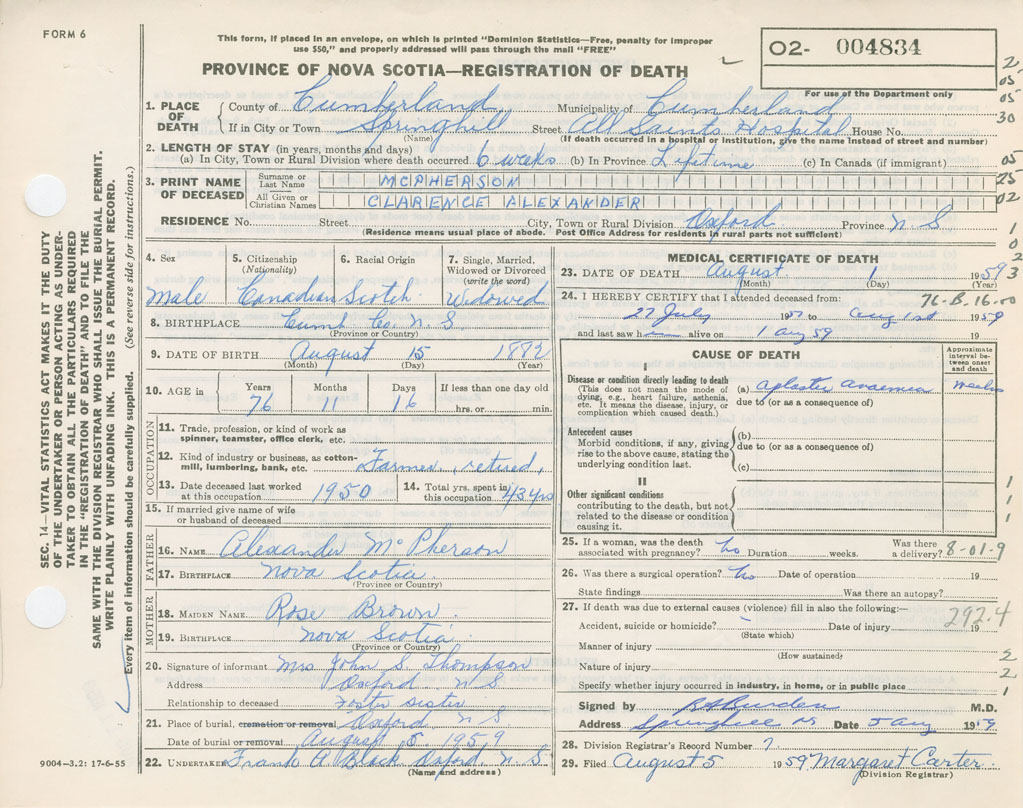 FORM 6
This form, if placed in an envelope, on which is printed "Dominion Statistics—Free, penalty for improper
use $50," and properly addressed will pass through the mail "FREE"
PROVINCE OF NOVA SCOTIA—REGISTRATION OF DEATH
02- 004834
For use of the Department only
2
05
05
30
05
25
02
1
0
2
3
SEC. 14—VITAL STATISTICS ACT MAKES IT THE DUTY
OF THE UNDERTAKER OR PERSON ACTING AS UNDER-
TAKER TO OBTAIN ALL THE PARTICULARS REQUIRED
IN THE "REGISTRATION OF DEATH" AND FILE THE
SAME WITH THE DIVISION REGISTRAR WHO SHALL ISSUE THE BURIAL PERMIT.
WRITE PLAINLY WITH UNFADING INK. THIS IS A PERMANENT RECORD.
Every item of information should be carefully supplied. (See reverse side for instructions.)
1. PLACE OF DEATH County of Cumberland Municipality of Cumberland
If in City or Town Springhill Street All Saints Hospital House No.
(Name) (If death occurred in a hospital or institution, give the name instead of street and number)
2. LENGTH OF STAY (in years, months and days)
(a) In City, Town or Rural Division where death occurred 6 weeks (b) In Province Lifetime (c) In Canada (if immigrant)
3. PRINT NAME OF DECEASED Surname or Last Name MCPHERSON
All Given or Christian Names CLARENCE ALEXANDER
RESIDENCE No. Street City, Town or Rural Division Oxford Province N S
(Residence means usual place of abode. Post Office Address for residents in rural parts not sufficient)
4. Sex 5. Citizenship (Nationality) 6. Racial Origin 7. Single, Married, Widowed or Divorced (write the word)
Male Canadian Scotch Widowed
8. BIRTHPLACE Cumb Co. N S
(Province or Country)
9. DATE OF BIRTH August 15 1882
(Month) (Day) (Year)
10. AGE in Years Months Days If less than one day old
76 11 16 hrs. or min.
OCCUPATION
11. Trade, profession, or kind of work as spinner, teamster, office clerk, etc.
12. Kind of industry or business, as cotton-mill, lumbering, bank, etc. Farmer, retired,
13. Date deceased last worked at this occupation 1950 14. Total yrs. spent in this occupation 43 yrs
15. If married give name of wife or husband of deceased
FATHER
16. NAME Alexander McPherson
17. BIRTHPLACE Nova Scotia
(Province or Country)
MOTHER
18. MAIDEN NAME Rose Brown
19. BIRTHPLACE Nova Scotia
(Province or Country)
20. Signature of informant Mrs John S. Thompson
Address Oxford N S
Relationship to deceased Foster sister
21. Place of burial, cremation or removal Oxford N S
Date of burial or removal August 5, 1959
22. UNDERTAKER Frank A. Black Oxford, N. S.
(Name and address)
9004-3.2: 17-6-55
MEDICAL CERTIFICATE OF DEATH
23. DATE OF DEATH August 1 1959
(Month) (Day) (Year)
24. I HEREBY CERTIFY that I attended deceased from: 76-B.16.00
27 July 1957 to Aug 1st 1959
and last saw h alive on 1 Aug 59
CAUSE OF DEATH
Approximate interval between onset and death
I
Disease or condition directly leading to death (a) Aplastic Anaemia weeks
(This does not mean the mode of dying, e.g., heart failure, asthenia, etc. It means the disease, injury, or complication which caused death.)
due to (or as a consequence of)
Antecedent causes
Morbid conditions, if any, giving rise to the above cause, stating the underlying condition last.
(b)
due to (or as a consequence of)
(c)
II
Other significant conditions
contributing to the death, but not related to the disease or condition causing it.
1
1
1
25. If a woman, was the death associated with pregnancy? No Duration weeks. Was there a delivery? 8-01-9
26. Was there a surgical operation? No Date of operation 19
State findings Was there an autopsy?
27. If death was due to external causes (violence) fill in also the following:—
292.4
Accident, suicide or homicide? Date of injury 19
(State which)
Manner of injury
(How sustained)
Nature of injury
Specify whether injury occurred in industry, in home, or in public place
2
2
1
Signed by Burden M.D.
Address Springhill NS Date 5 Aug 1959
28. Division Registrar's Record Number 7.
29. Filed August 5 1959 Margaret Carter.
(Division Registrar)